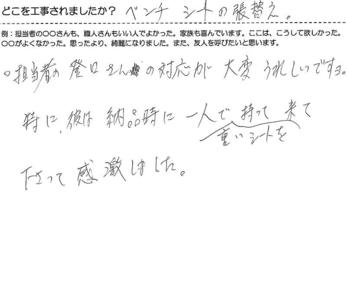 どこを工事されましたか？ ベンチ シートの張替え。
例：担当者の〇〇さんも、職人さんもいい人でよかった。家族も喜んでいます。ここは、こうして欲しかった。
〇〇がよくなかった。思ったより、綺麗になりました。また、友人を呼びたいと思います。
○担当者の登口さんの対応が 大変 うれしいです。
特に、彼は 納品時に 一人で 持って 来て
重いシートを
下さって 感激しました。